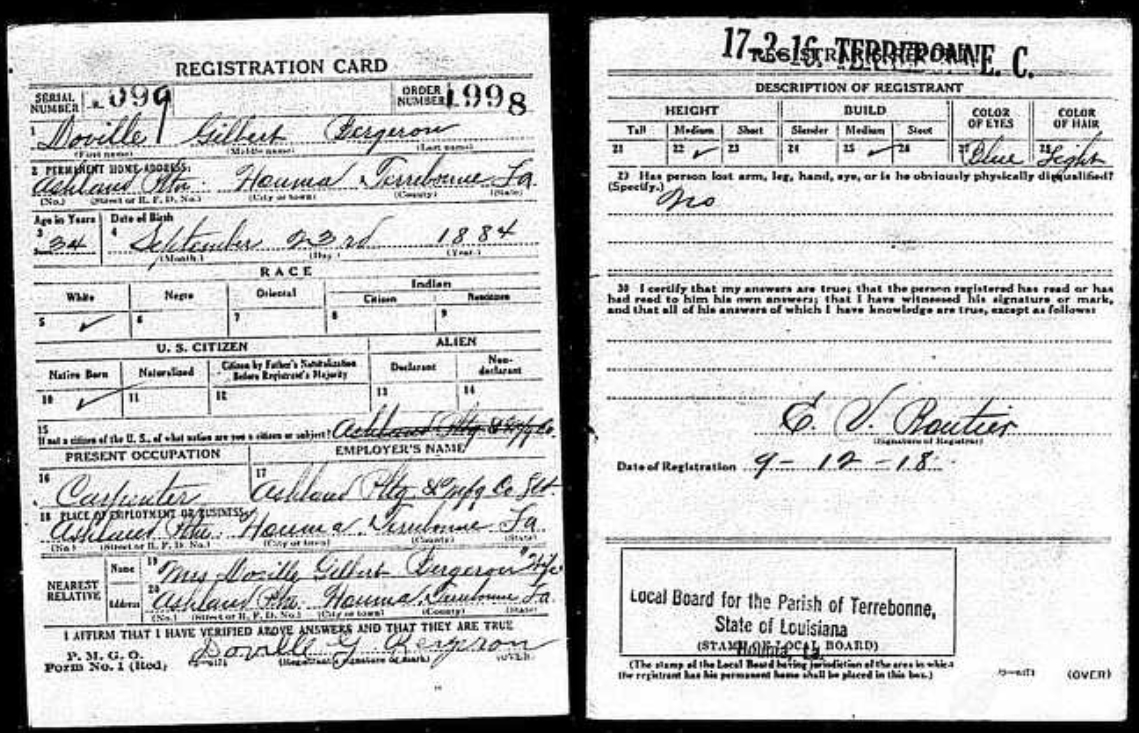 REGISTRATION CARD
SERIAL NUMBER 1099
ORDER NUMBER 1998
1 Doville Gilbert Bergeron
(First name) (Middle name) (Last name)
2 PERMANENT HOME ADDRESS:
Ashland Pltn. Houma Terrebonne La
(No.) (Street or R. F. D. No.) (City or town) (County) (State)
Age in Years Date of Birth
3 34 4 September 23rd 1884
(Month.) (Day.) (Year.)
RACE
White Negro Oriental Indian
Citizen Noncitizen
5 ✓ 6 7 8 9
U. S. CITIZEN ALIEN
Native Born Naturalized Citizen by Father's Naturalization Before Registrant's Majority Declarant Non-declarant
10 ✓ 11 12 13 14
15 If not a citizen of the U. S., of what nation are you a citizen or subject? Ashland Pltg & Mfg Co.
PRESENT OCCUPATION EMPLOYER'S NAME
16 Carpenter 17 Ashland Pltg. & Mfg Co
18 PLACE OF EMPLOYMENT OR BUSINESS:
Ashland Pltn. Houma Terrebonne La
(No.) (Street or R. F. D. No.) (City or town) (County) (State)
NEAREST RELATIVE
Name 19 Mrs Doville Gilbert Bergeron "Wife
Address 20 Ashland Pltn. Houma Terrebonne La.
(No.) (Street or R. F. D. No.) (City or town) (County) (State)
I AFFIRM THAT I HAVE VERIFIED ABOVE ANSWERS AND THAT THEY ARE TRUE
P. M. G. O.
Form No. 1 (Red) Doville G Bergeron
(Registrant's signature or mark) (OVER)
17-2-16. TERREBONNE. C.
REGISTRAR'S REPORT
DESCRIPTION OF REGISTRANT
HEIGHT BUILD COLOR OF EYES COLOR OF HAIR
Tall Medium Short Slender Medium Stout
21 22 ✓ 23 24 25 ✓ 26 27 Blue 28 Light
29 Has person lost arm, leg, hand, eye, or is he obviously physically disqualified?
(Specify.) No
30 I certify that my answers are true; that the person registered has read or has
had read to him his own answers; that I have witnessed his signature or mark,
and that all of his answers of which I have knowledge are true, except as follows:
E. V. Routier
(Signature of Registrar)
Date of Registration 9-12-18
Local Board for the Parish of Terrebonne,
State of Louisiana
(STAMP OF LOCAL BOARD)
Houma, La.
(The stamp of the Local Board having jurisdiction of the area in which
the registrant has his permanent home shall be placed in this box.)
(OVER)